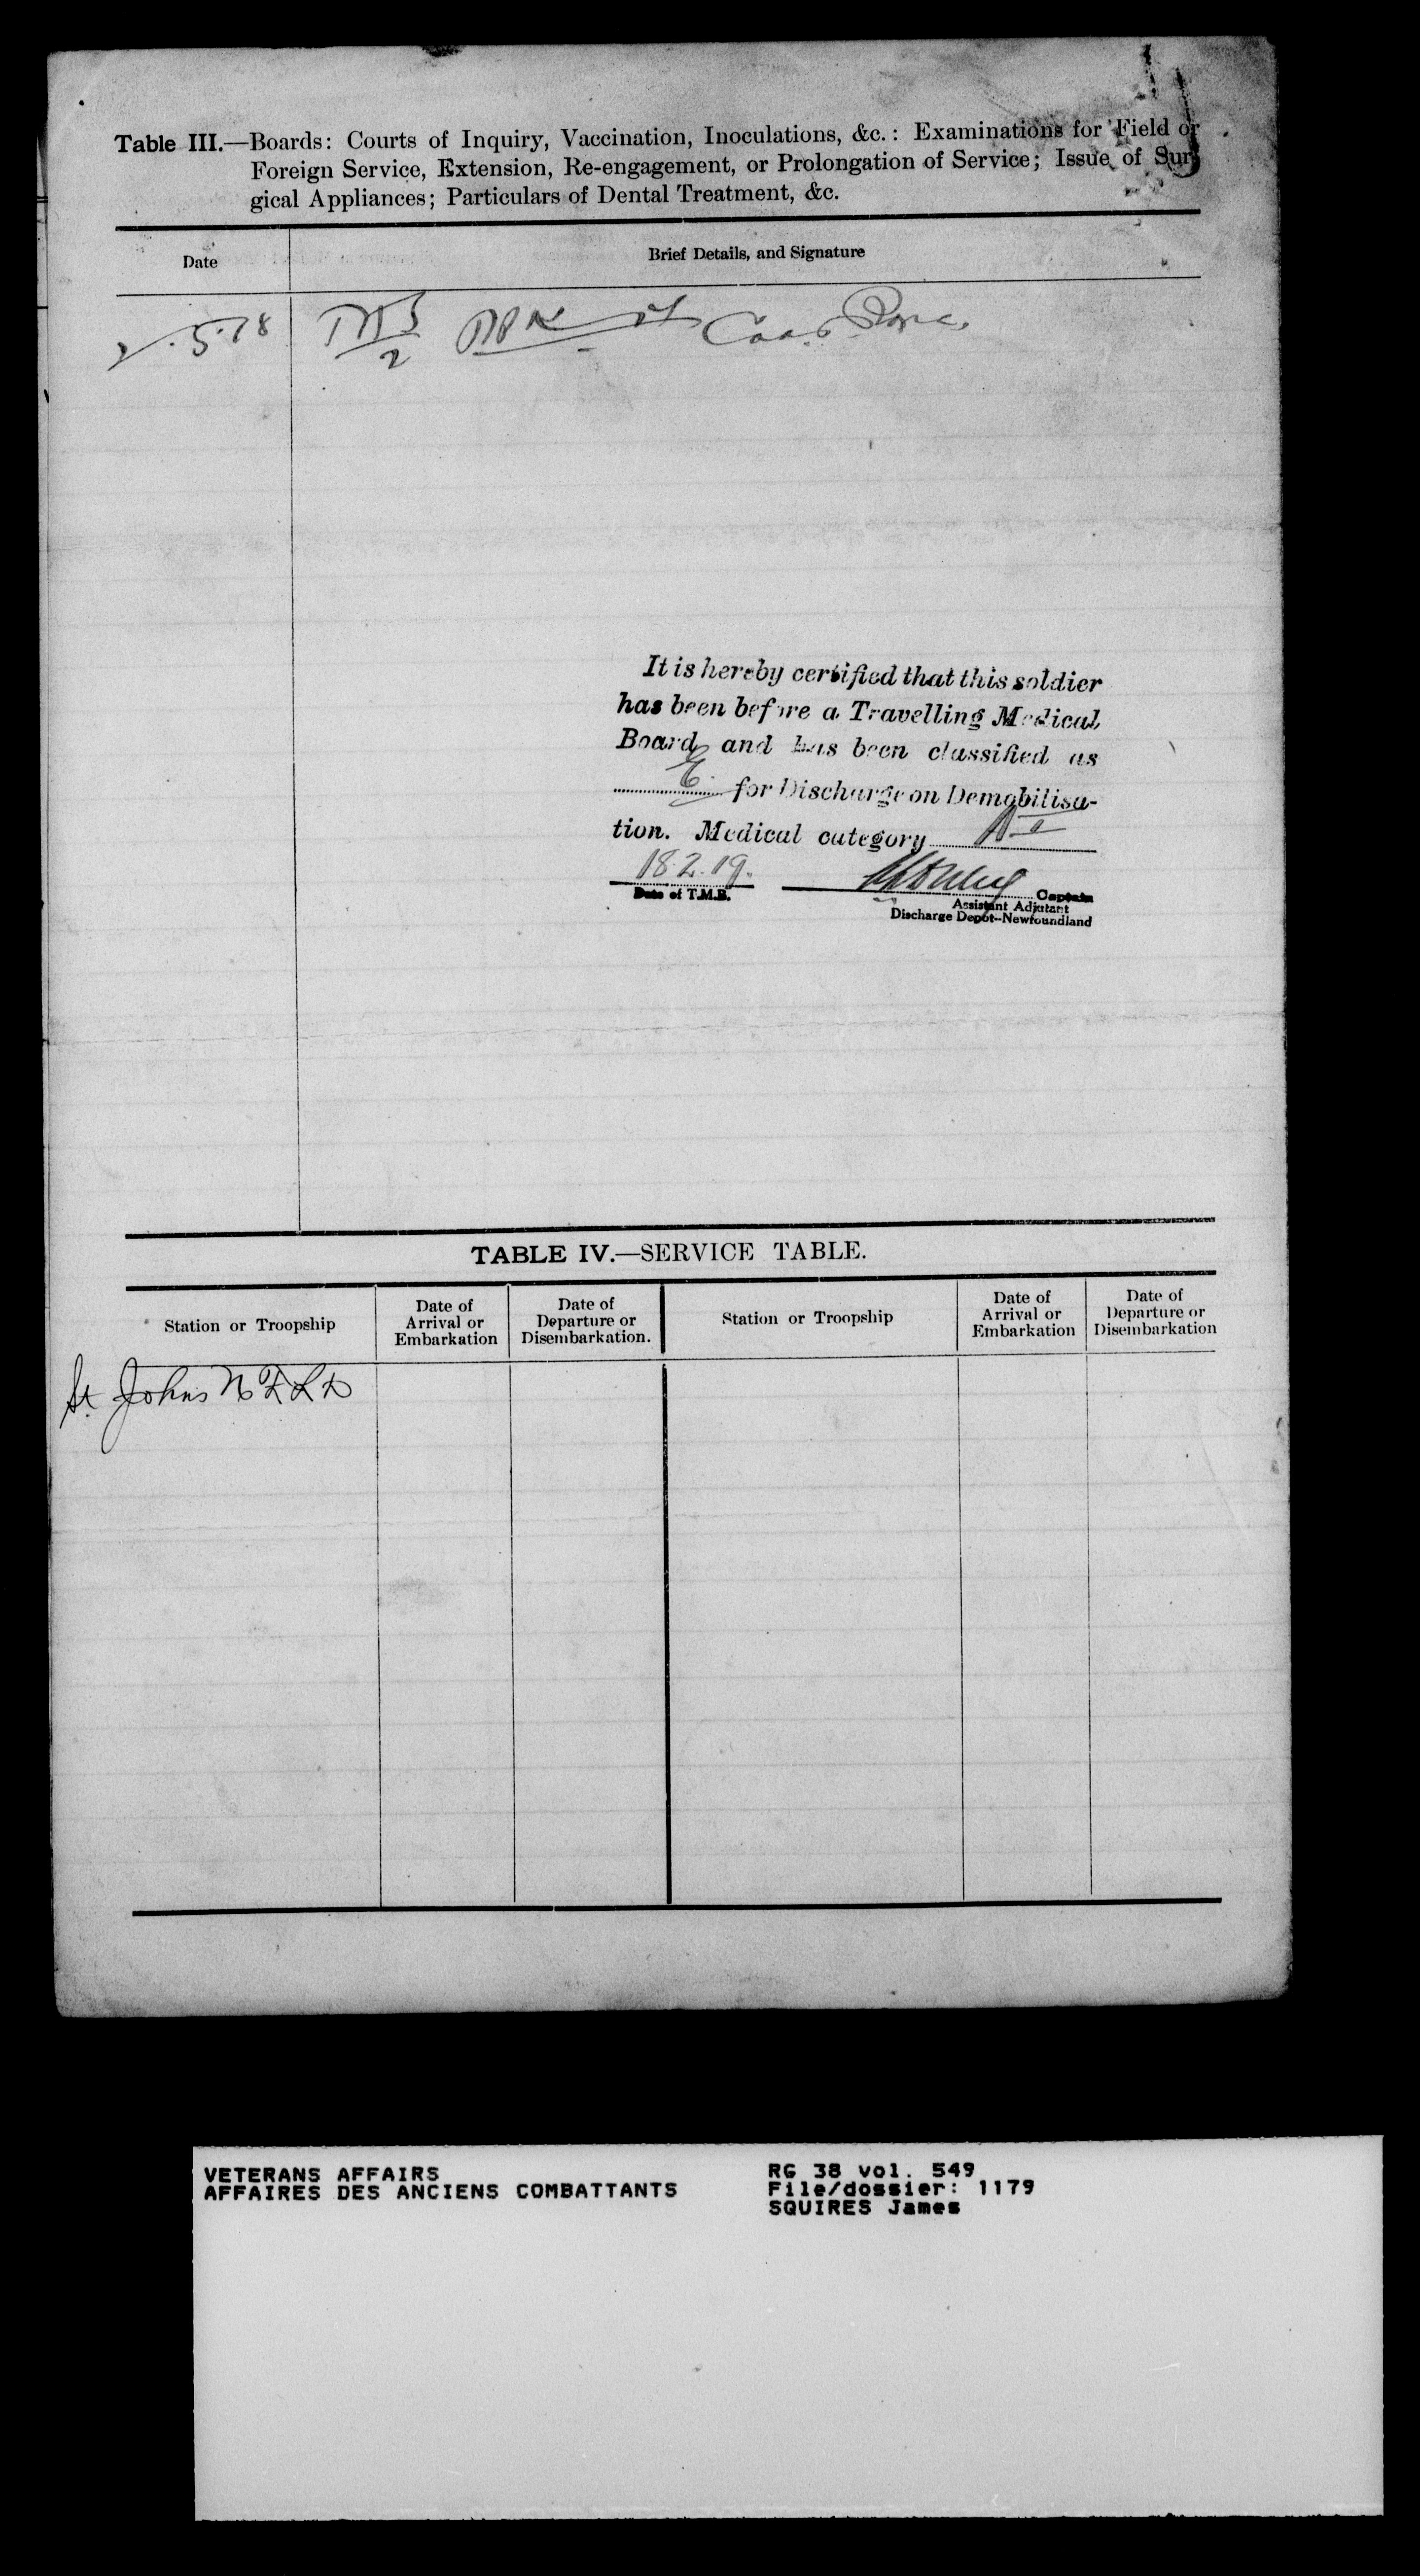 Table III.—Boards: Courts of Inquiry, Vaccination, Inoculations, &c.: Examinations for Field or
Foreign Service, Extension, Re-engagement, or Prolongation of Service; Issue of Sur
gical Appliances; Particulars of Dental Treatment, &c.
Date
Brief Details, and Signature
5.18
2
It is hereby certified that this soldier
has been before a Travelling Medical
Board and has been classified as
E for Discharge on Demobilisa-
tion. Medical category
18.2.19.
Date of T.M.B.
Captain
Assistant Adjutant
Discharge Depôt--Newfoundland
TABLE IV.—SERVICE TABLE.
Station or Troopship
Date of
Arrival or
Embarkation
Date of
Departure or
Disembarkation.
Station or Troopship
Date of
Arrival or
Embarkation
Date of
Departure or
Disembarkation
St. Johns NFLD
VETERANS AFFAIRS
AFFAIRES DES ANCIENS COMBATTANTS
RG 38 vol. 549
File/dossier: 1179
SQUIRES James